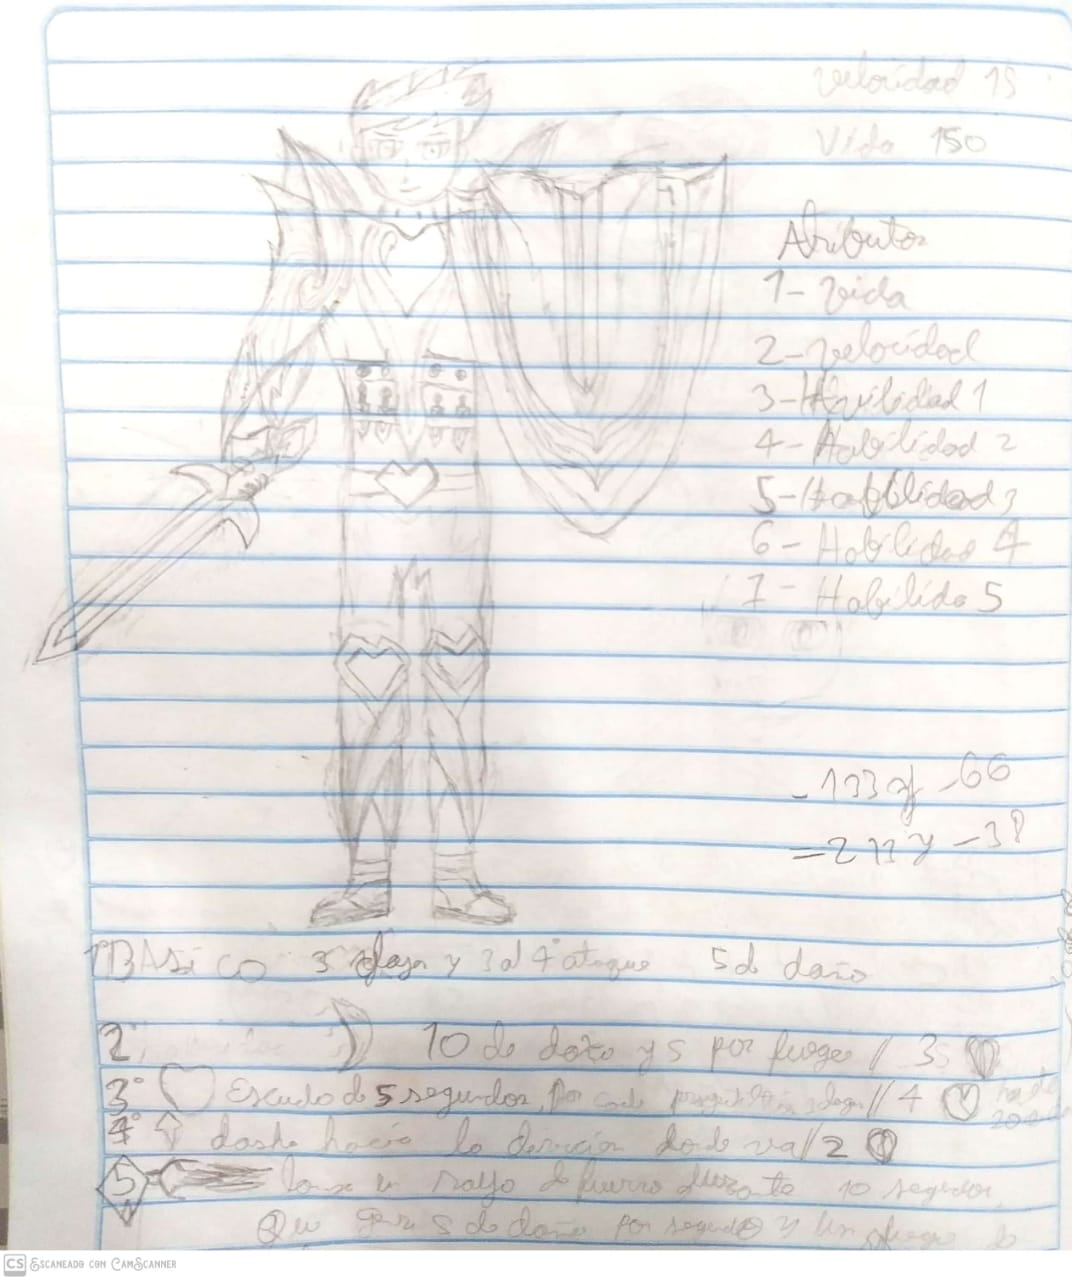 velocidad 15
Vida 150
Atributos
1- vida
2- velocidad
3- Habilidad 1
4- Habilidad 2
5- Habilidad 3
6- Habilidad 4
7- Habilida 5
-133 y -66
-213 y -38
1°BASiCO 3 y 3 al 4° ataque 5 de daño
2° 10 de daño y 5 por fuego // 3s
3° Escudo de 5 segundos, por cada // 4
4° dash hacia la dirección donde va // 2
5 lanza un rayo de fuego durante 10 segundos,
Que 5 de daño por segundo y un
CS ESCANEADO CON CAMSCANNER